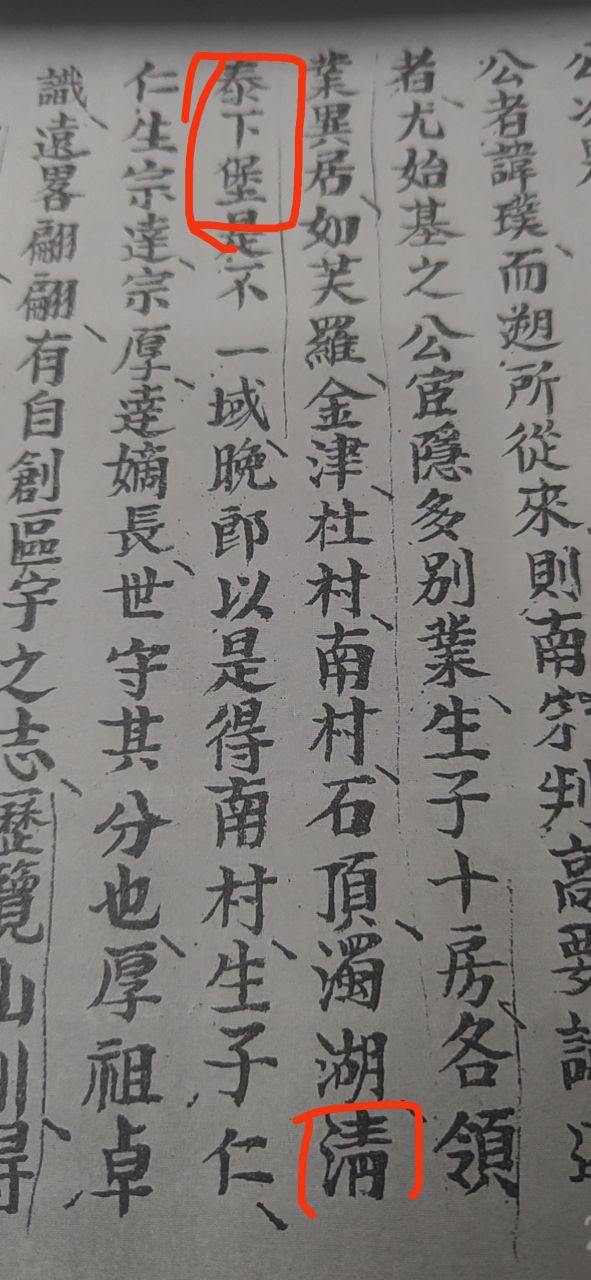 公者諱璞而遡所從來則南寧判高要
者尤始基之公宦隱多別業生子十房各領
業異居如芙羅金津杜村南村石頂濁湖清
泰下堡是不一域晚郎以是得南村生子仁
仁生宗達宗厚達嫡長世守其分也厚祖卓
識遠畧翩翩有自創區宇之志歷覽山川得